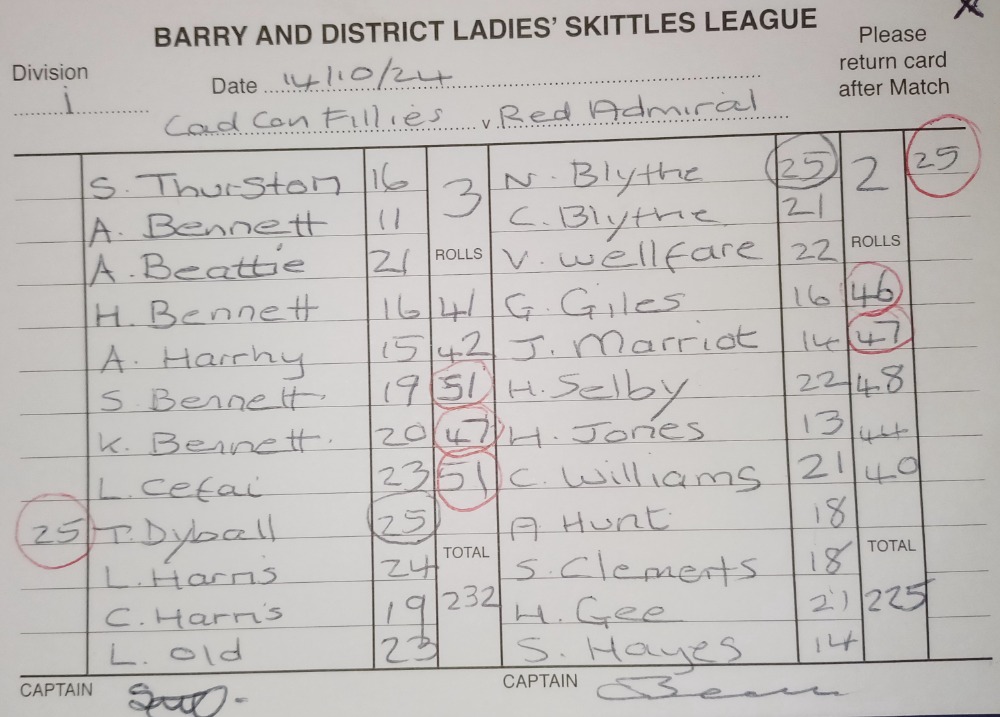 BARRY AND DISTRICT LADIES' SKITTLES LEAGUE
Please return card after Match
Division 1
Date 14/10/24
Cad Con Fillies v Red Admiral
S. Thurston 16 3 N. Blythe 25 2 25
A. Bennett 11 C. Blythe 21
A. Beattie 21 ROLLS V. Wellfare 22 ROLLS
H. Bennett 16 41 G. Giles 16 46
A. Harrhy 15 42 J. Marriot 14 47
S. Bennett. 19 51 H. Selby 22 48
K. Bennett. 20 47 H. Jones 13 44
L. Cefai 23 51 C. Williams 21 40
25 T. Dyball 25 A Hunt 18
L. Harris 24 TOTAL S. Clements 18 TOTAL
C. Harris 19 232 H. Gee 21 225
L. Old 23 S. Hayes 14
CAPTAIN CAPTAIN